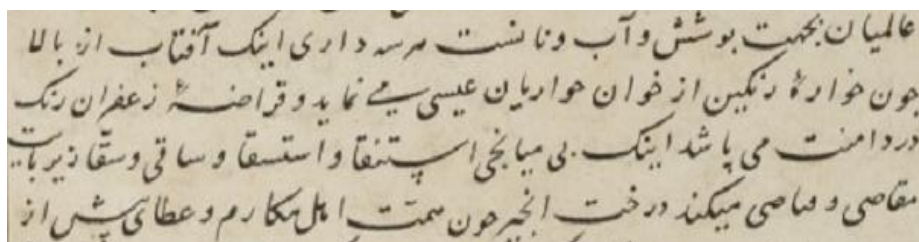 عالمیان بجهت پوشش و آب و نانست هرسه داری اینک آفتاب از بالا
چون خوارهٔ رنکین از خوان حواریان عیسی می نماید و قراضهٔ زعفران رنک
در دامنت می پاشد اینک بی میانجی استنقا و استسقا و ساقی و سقا زیر پایت
مقاصی و میکند درخت انجیر چون همت اهل مکارم و عطای پیش از